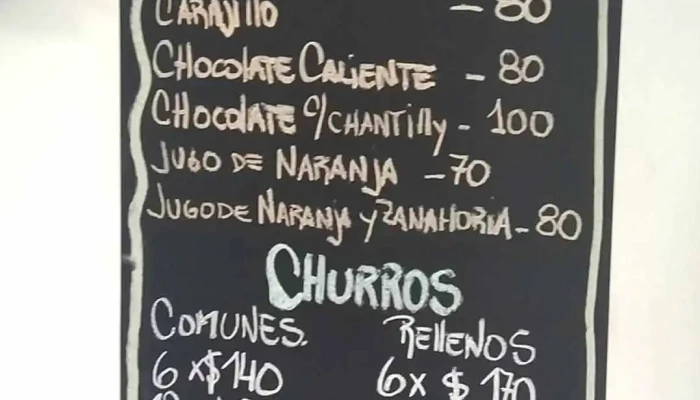 CARAJILLO - 80
CHOCOLATE CALIENTE - 80
CHOCOLATE C/CHANTILLY - 100
JUGO DE NARANJA - 70
JUGO DE NARANJA Y ZANAHORIA - 80
CHURROS
COMUNES. RELLENOS
6 X $140 6 X $ 170